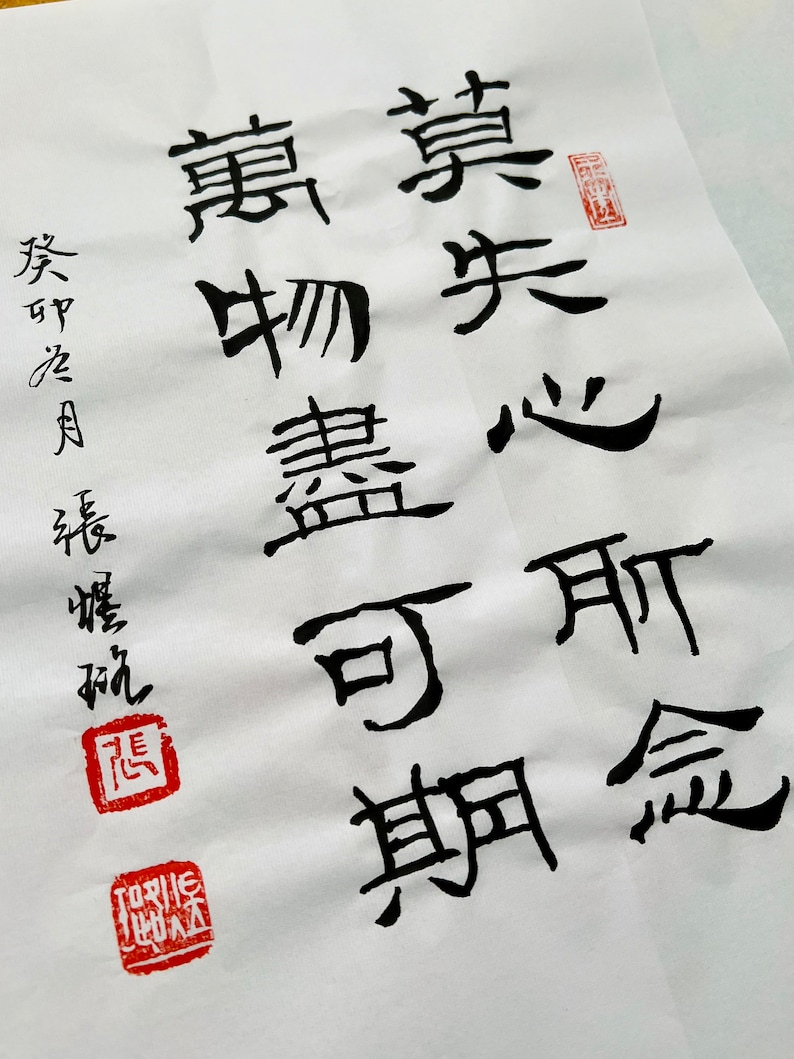 莫失心所念
萬物盡可期
癸卯冬月 張
張